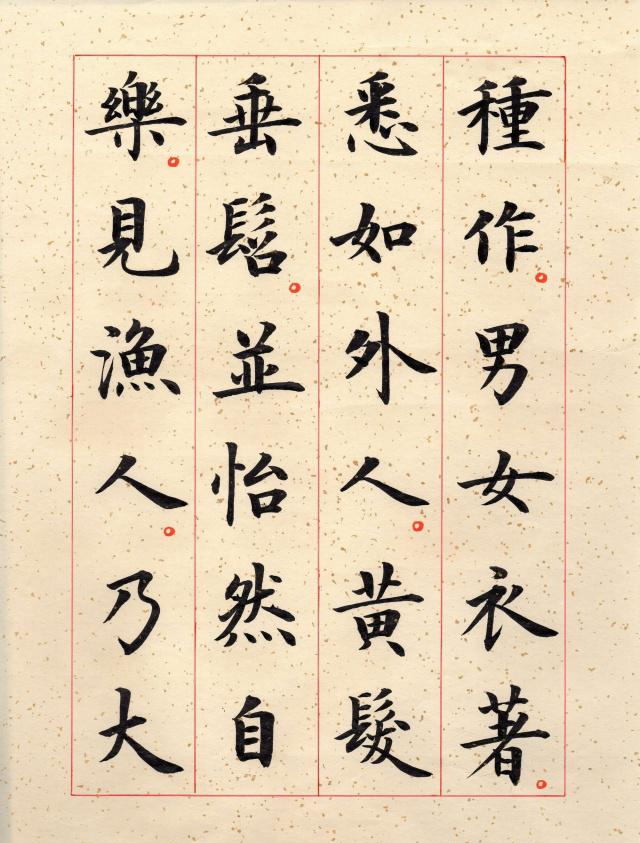 種作男女衣著
悉如外人黃髮
垂髫並怡然自
樂見漁人乃大